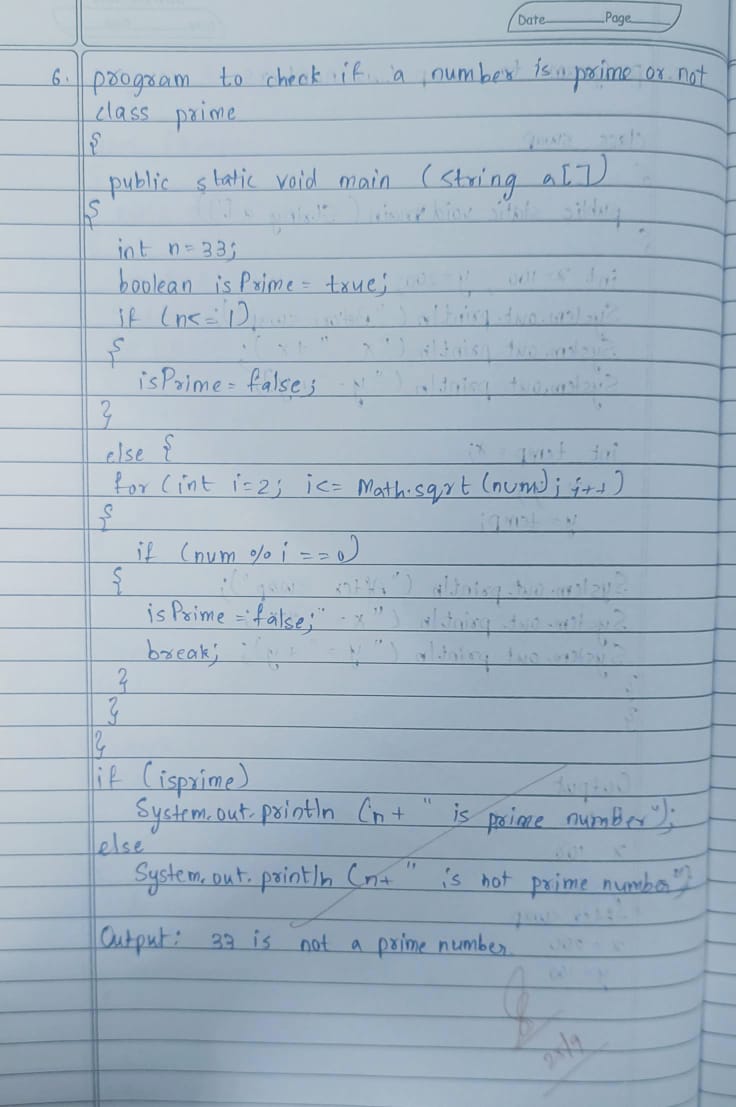 Date Page
6. program to check if a number is prime or not
class prime
{
public static void main (String a[])
{
int n=33;
boolean isPrime = true;
if (n<=1)
{
isPrime = false;
}
else {
for (int i=2; i<= Math.sqrt (num); i++)
{
if (num % i == 0)
{
isPrime = false;
break;
}
}
}
if (isprime)
System.out.println (n+ " is prime number");
else
System.out.println (n+ " is not prime number")
Output: 33 is not a prime number.